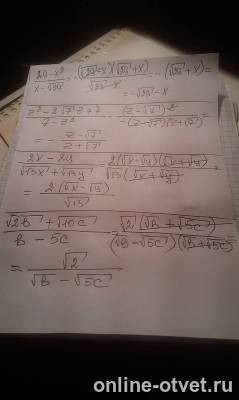 (29 - x²)/(x - √29) = -((√29 - x)(√29 + x))/(√29 - x) = -(√29 + x) =
= -√29 - x
(z² - 2√7 z + 7)/(7 - z²) = (z - √7)²/(-(z - √7)(z + √7)) =
= - (z - √7)/(z + √7)
(2x - 2y)/(√13x + √13y) = 2(√x - √y)(√x + √y)/(√13(√x + √y)) =
= 2(√x - √y)/√13
(√2B + √10C)/(B - 5C) = √2(√B + √5C)/((√B - √5C)(√B + √5C))
= √2/(√B - √5C)
online-otvet.ru